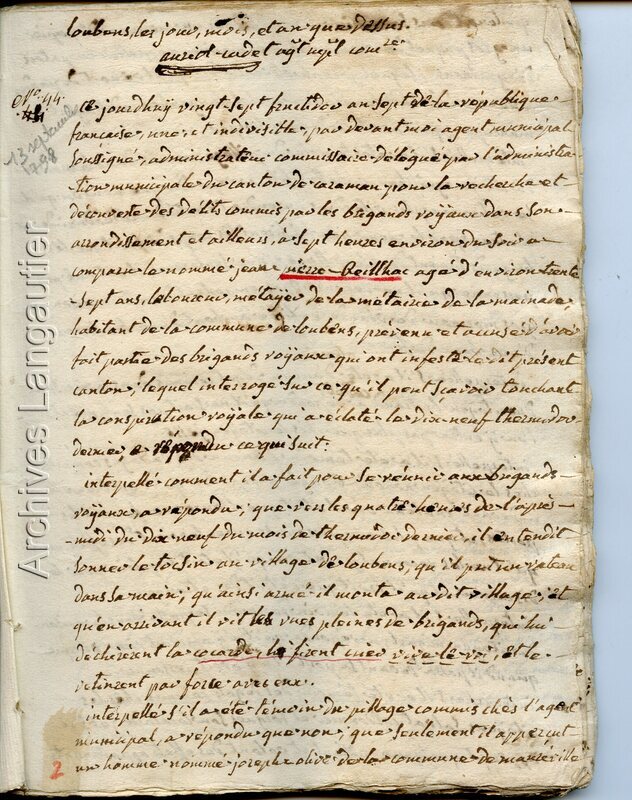 loubens, les jour, mois, et an que dessus.
auriol cadet agt mpl comre
No. 44.
13 septembre
1798
Ce jourdhuy vingt sept fructidor an sept de la république
française, une, et indivisible, par devant moi agent municipal
soussigné, administrateur commissaire délégué par l'administra-
tion municipale du canton de caraman pour la recherche et
découverte des délits commis par les brigands royaux dans son
arrondissement et ailleurs, à sept heures environ du soir a
comparu le nommé jean pierre Reilhac agé d'environ trente
sept ans, laboureur, métayer de la métairie de la mainade,
habitant de la commune de loubens, prévenu et accusé d'avoir
fait partie des brigands royaux qui ont infesté le dit présent
canton; lequel interrogé sur ce qu'il peut sçavoir touchant
la conspiration royale qui a éclaté le dix neuf thermidor
dernier, a répondu ce qui suit.
interpellé comment il a fait pour se réunir aux brigands
royaux, a répondu; que vers les quatre heures de l'après-
midi du dix neuf du mois de thermidor dernier, il entendit
sonner le tocsin au village de loubens; qu'il prit un rateau
dans sa main; qu'ainsi armé il monta au dit village; et
qu'en arrivant il vit les rues pleines de brigands, qui lui
déchirèrent la cocarde, lui firent crier vive le roi, et le
retinrent par force avec eux.
interpellé s'il a été témoin du pillage commis chès l'agent
municipal, a répondu que non; que seulement il apperçut
un homme nommé joseph olive de la commune de maureville
2
Archives Langautier